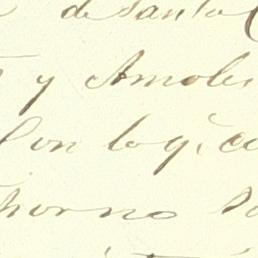 de Santa
y Amoles
Con lo q.
horno